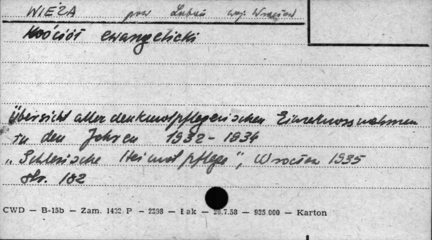 WIEŻA pow Lubań woj. Wrocław
Kościół ewangelicki
Übersicht aller denkmalpflegerischen Einzelmassnahmen
in den Jahren 1932 - 1934
"Schlesische Heimatpflege", Wrocław 1935
str. 162
CWD — B-15b — Zam. 1402 P — 2238 — Łak — 28.7.58 — 925.000 — Karton